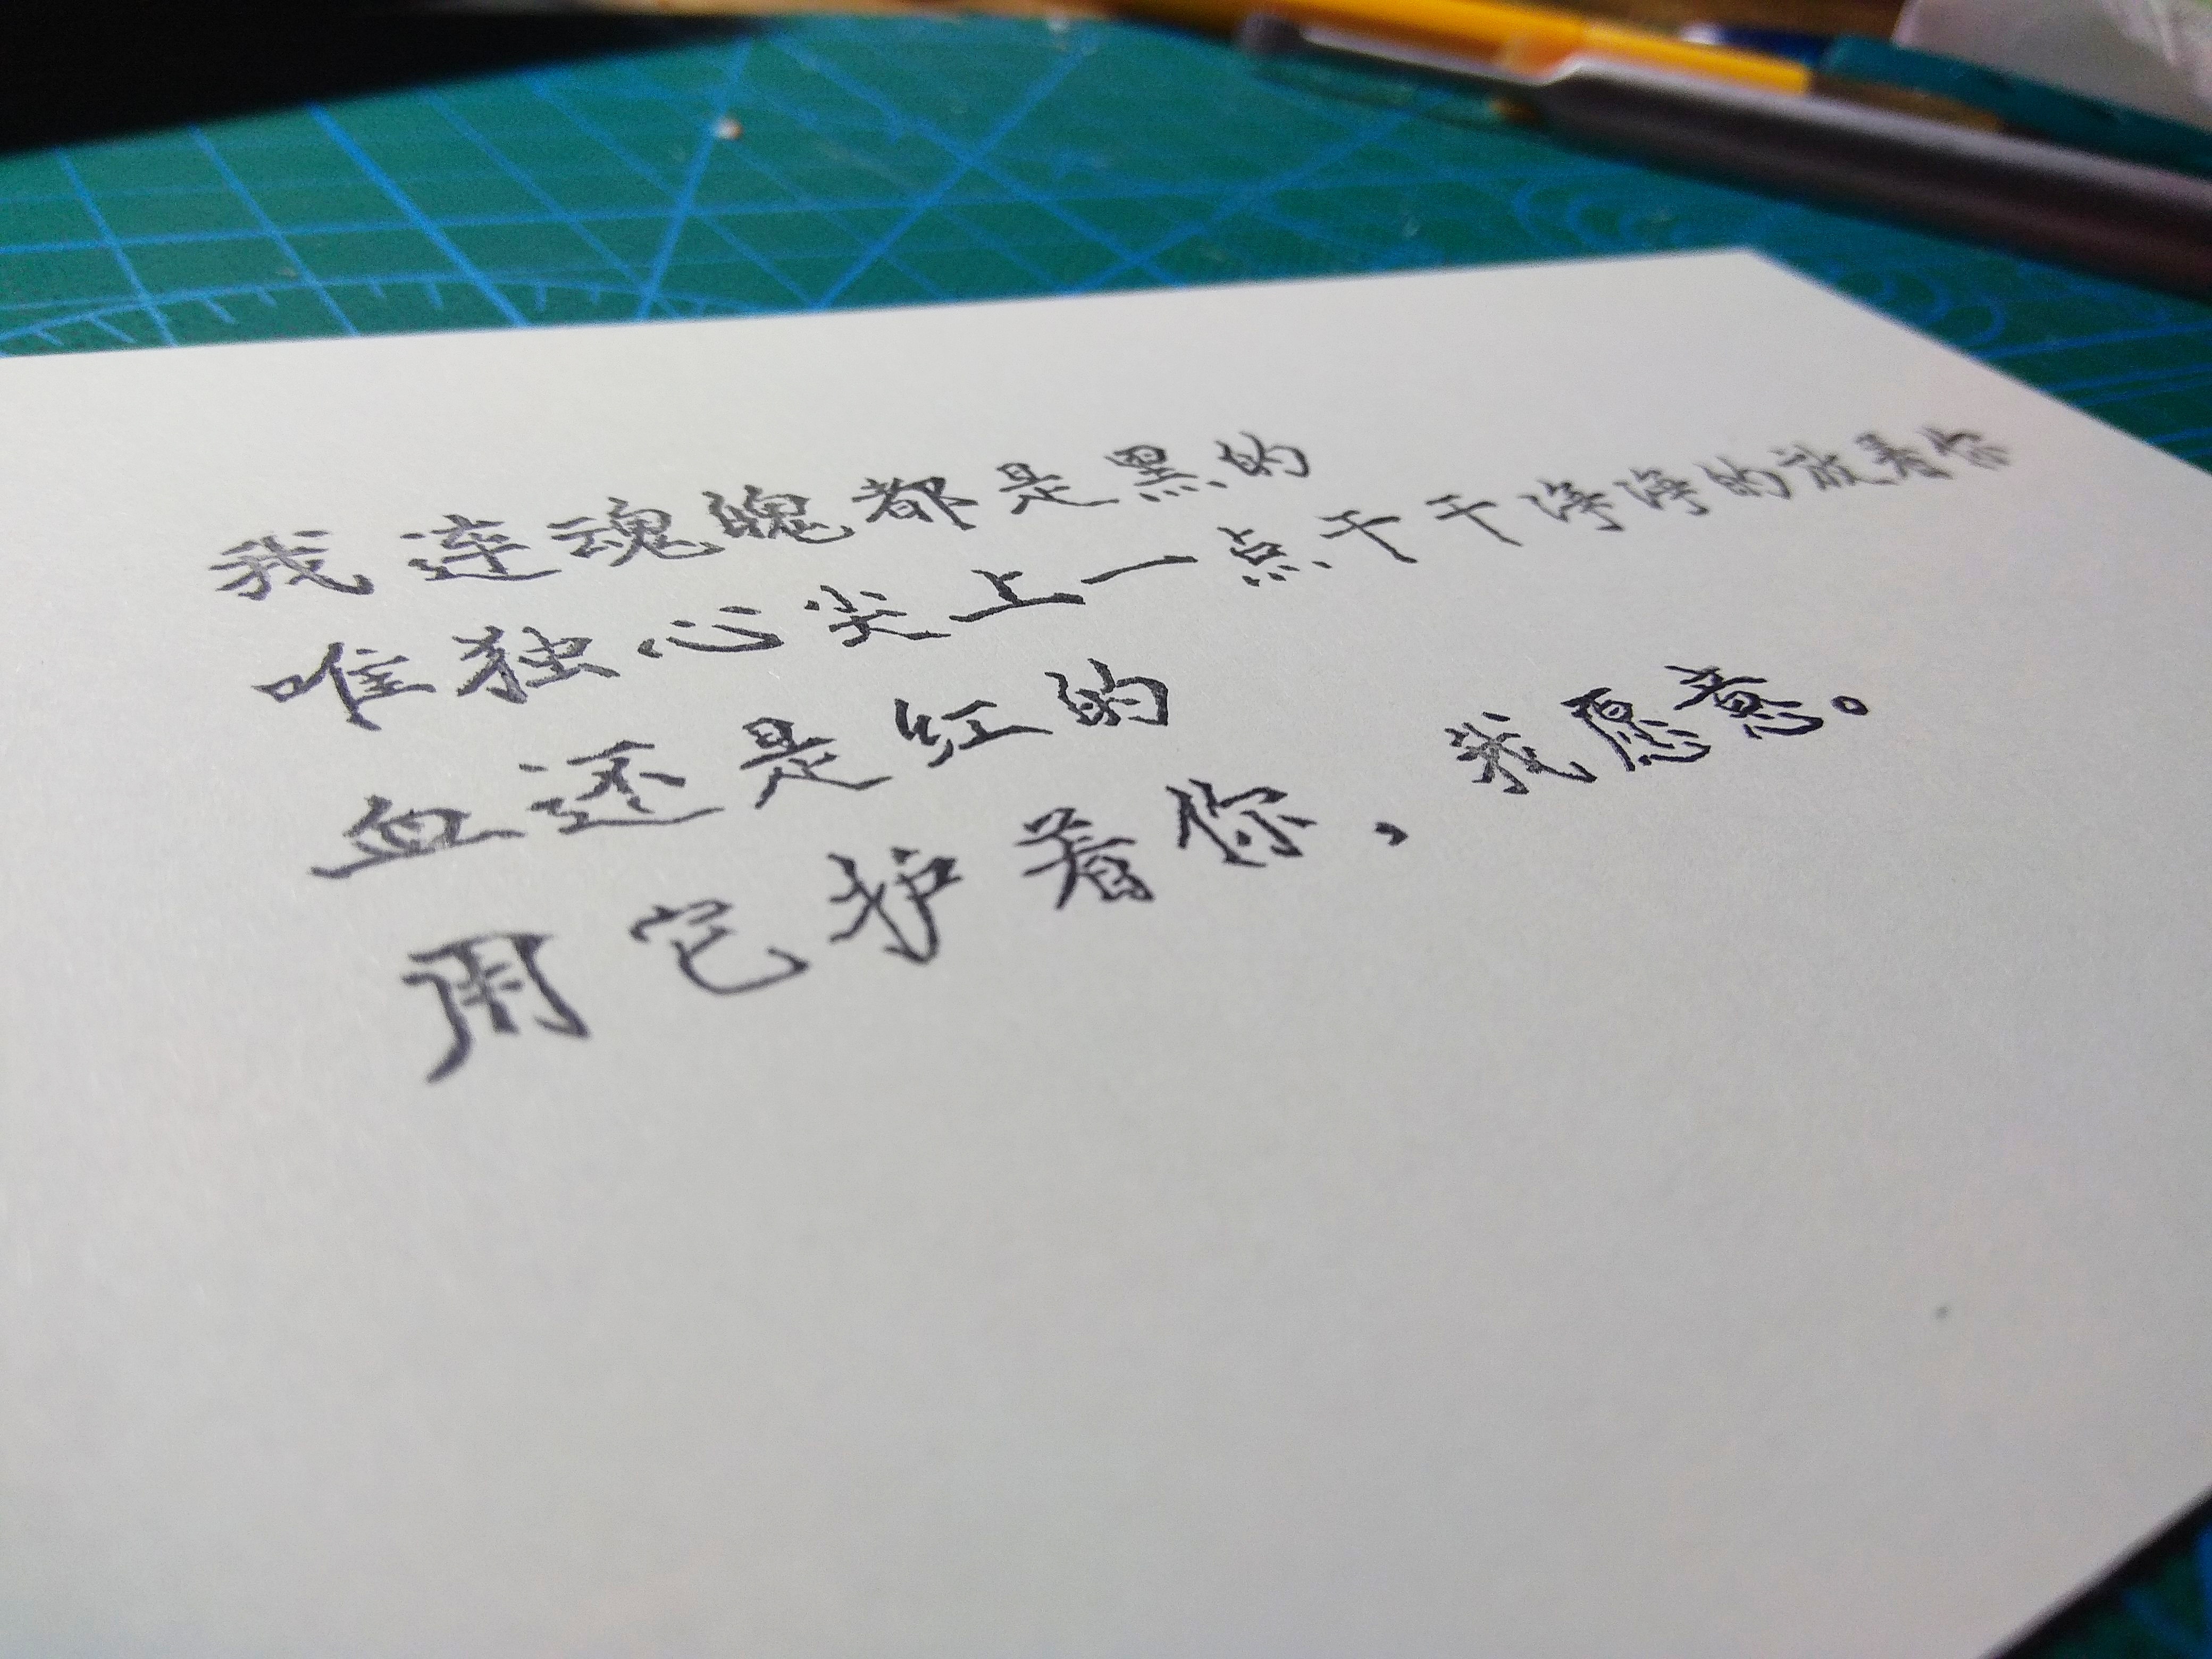 我连魂魄都是黑的
唯独心尖上一点干干净净的放着你
血还是红的
用它护着你，我愿意。